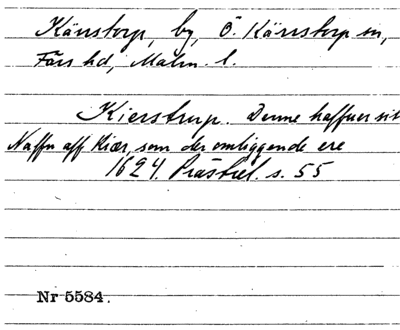 Kärrstorp, by, Ö. Kärrstorp sn,
Färs hd, Malm. l.
Kierstrup. Denne haffuer sit
Naffn aff Kiær, som der omliggende ere
1624. Prästrel. s. 55
Nr 5584.